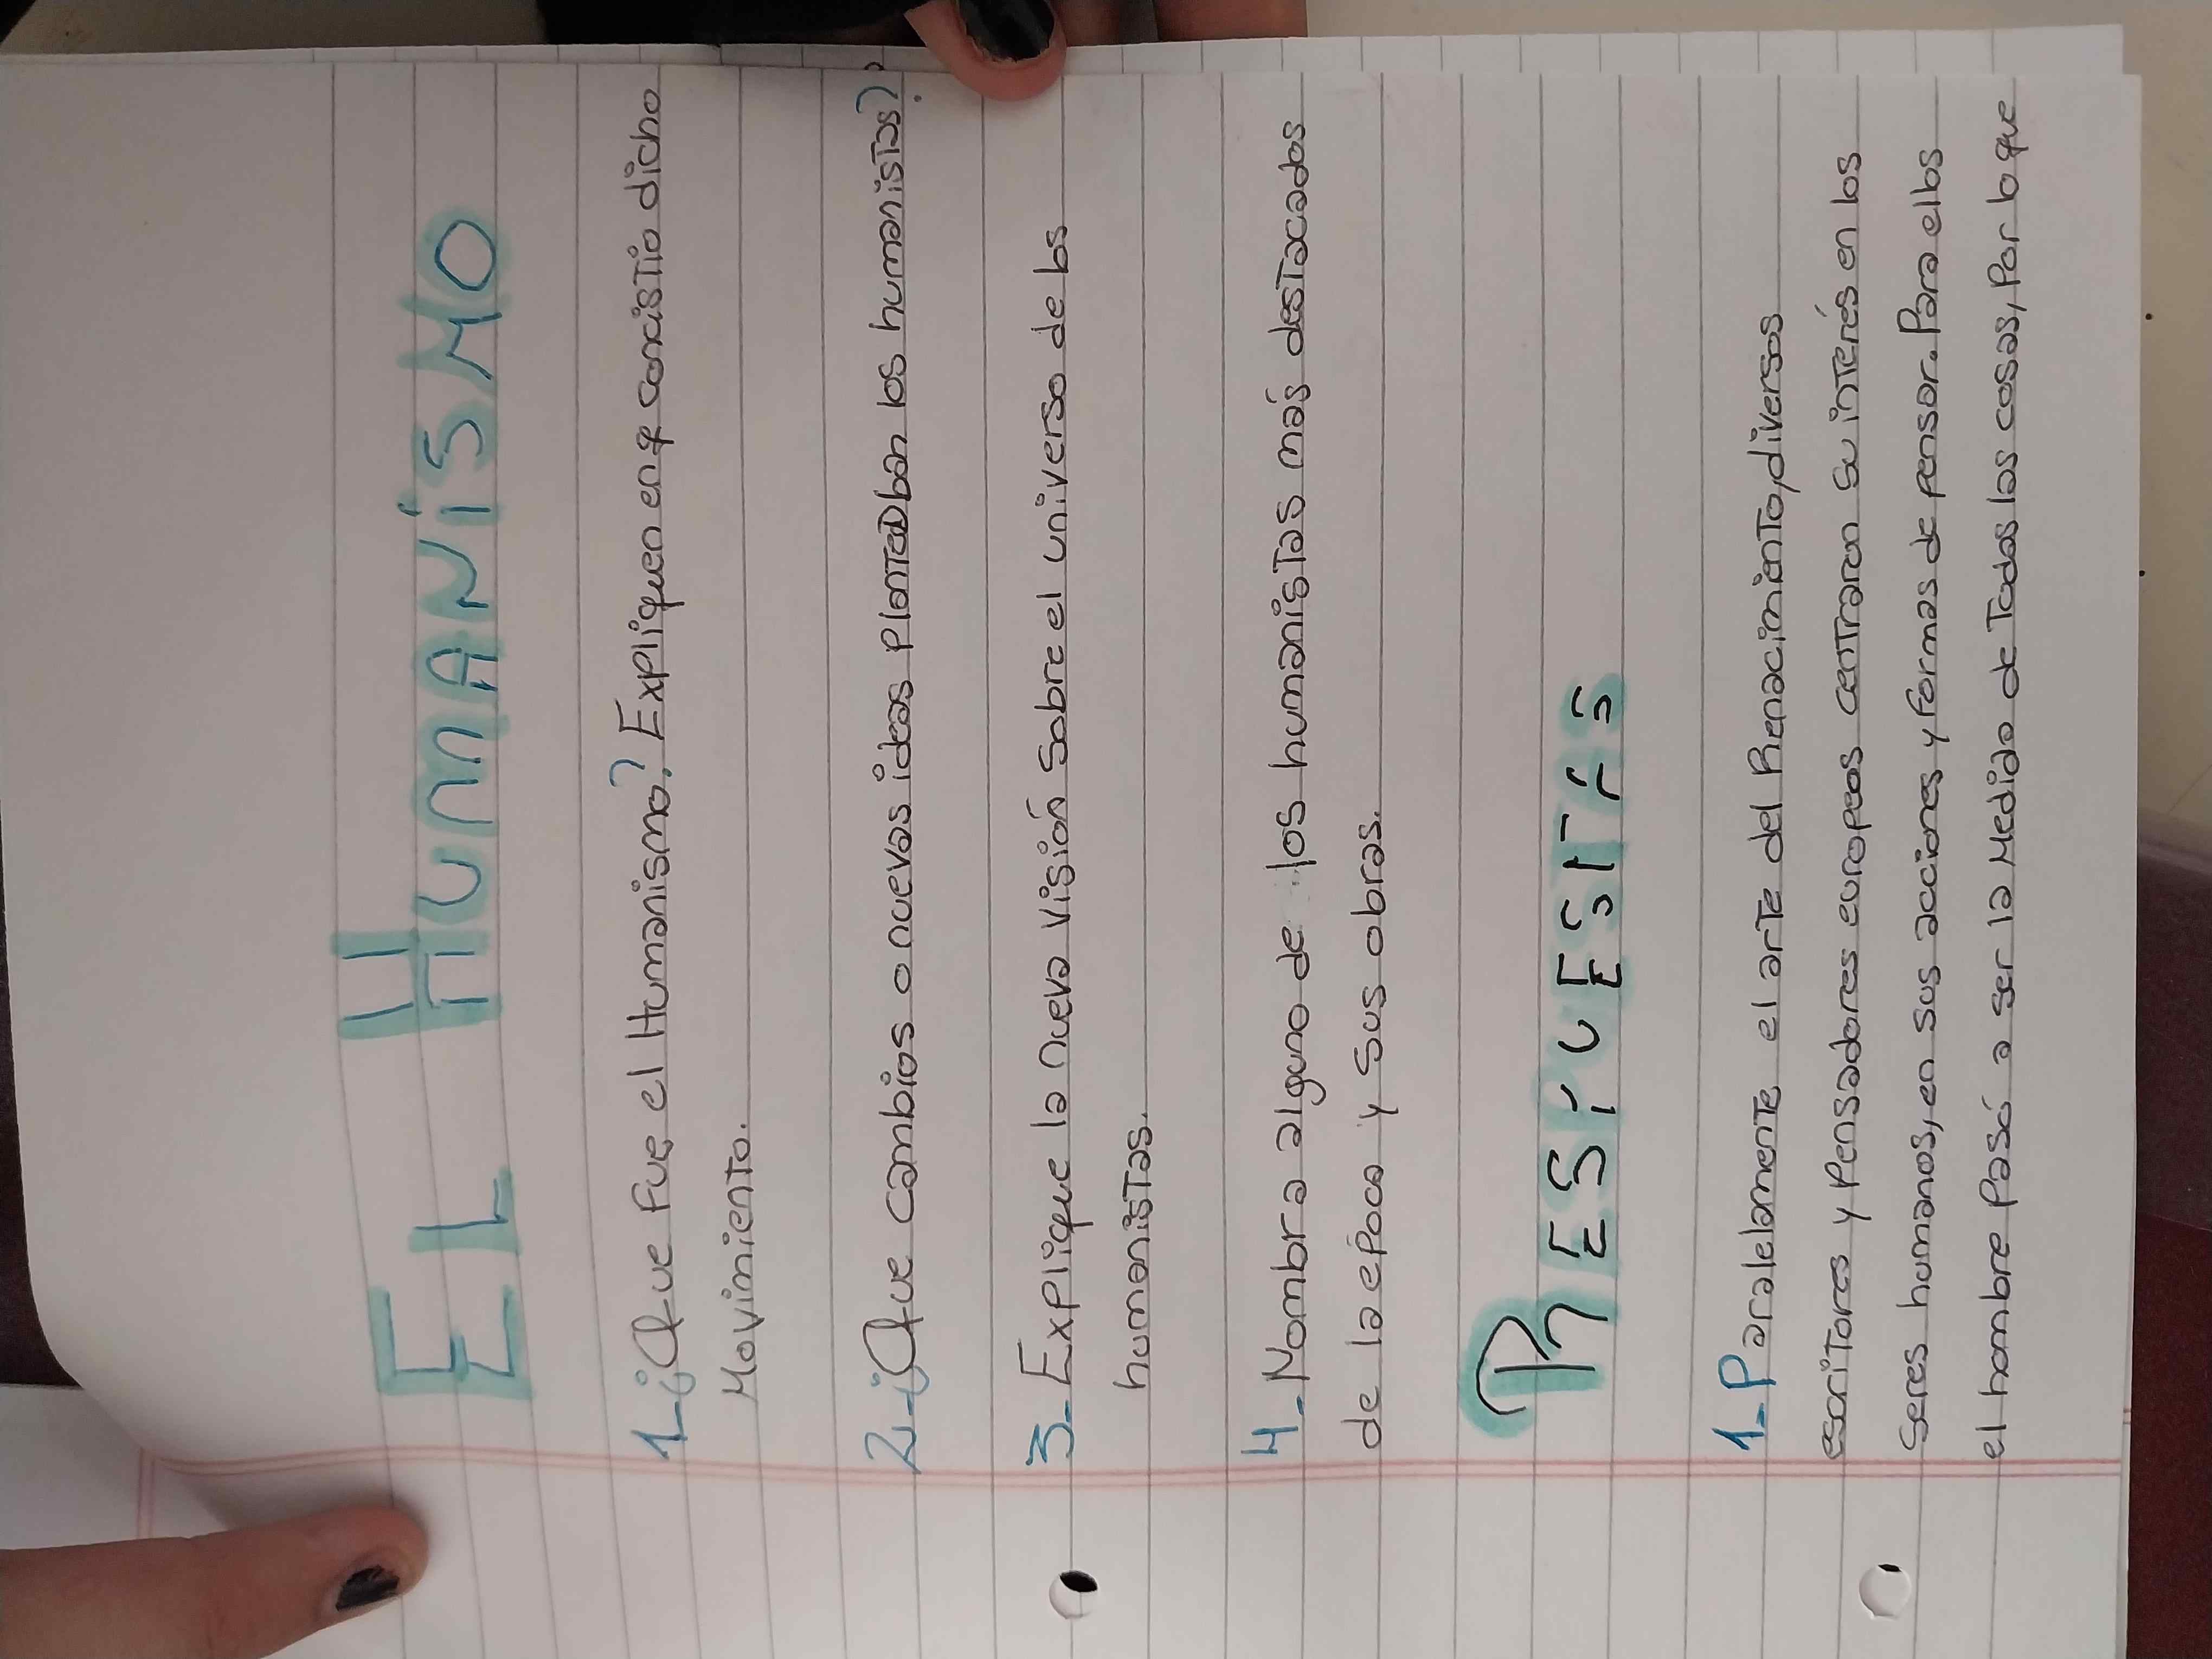 EL HUMANISMO
1-¿Que fue el Humanismo? Expliquen en q concistio dicho
Movimiento.
2-¿Que cambios o nuevas ideas planteaban los humanistas?
3-Explique la nueva visión sobre el universo de los
humanistas.
4-Nombra alguno de los humanistas más destacados
de la época y sus obras.
RESPUESTAS
1-Paralelamente el arte del Renacimiento, diversos
escritores y pensadores europeos centraron su interés en los
seres humanos, en sus acciones y formas de pensar. Para ellos
el hombre pasó a ser la medida de todas las cosas, por lo que